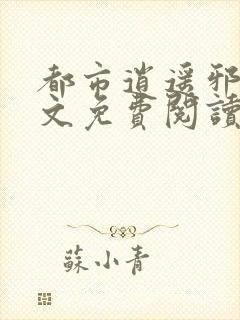 都市逍遥邪
文免費閱讀
蘇小青